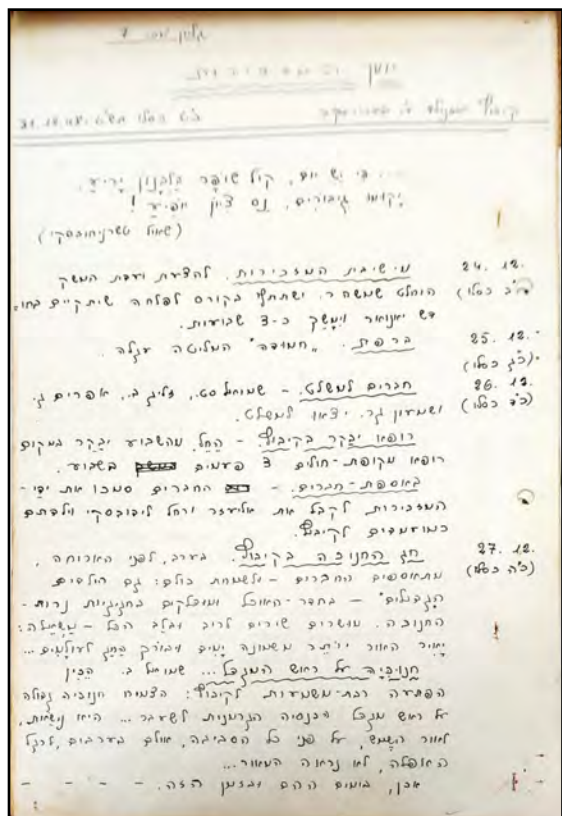 גליון מס. 7
יומן
כ"ט כסלו תש"ט 31.12.48
... כי יש יום, קול שופר בלבנון יריע,
יקומו גיבורים, נס ציון יופיע!
(שאול טשרניחובסקי)
24.12. מישיבת המזכירות. להצעת ועדת המשק
(כ"ב כסלו) הוחלט שמשה ר. ישתתף בקורס לפלחה שיתקיים בחו-
דש ינואר וימשך כ-3 שבועות.
25.12. ברפת. "חמודה" המליטה עגלה.
(כ"ג כסלו)
26.12. חברים למשלט. – שמואל סט., זליג ב., אפרים ג.
(כ"ד כסלו) ושמעון גר. יצאו למשלט.
רופא יבקר בקיבוץ – החל מהשבוע יבקר במקום
רופא מקופת-חולים 3 פעמים בשבוע.
באספת-חברים. – החברים סמכו את ידי-
המזכירות לקבל את אליעזר ורחל ליבובסקי וילדתם
כמועמדים לקיבוץ.
27.12. חג החנוכה בקיבוץ. בערב, לפני הארוחה,
(כ"ה כסלו) מתאספים החברים – ולשמחת כולם: גם הילדים
"הגדולים" – בחדר-האוכל ומדליקים בחגיגיות נרות-
החנוכה. מושרים שירים לרוב ובלב הכל – משאלה:
יאיר האור יותר משמונה ימים ויבורך החג לעולמים...
חנוכיה על ראש המגדל... שמואל ב. הכין
הפתעה רבת-משמעות לקיבוץ: הצמיח חנוכיה גדולה
על ראש מגדל הכנסיה הגרמנית לשעבר... היא נישאת,
לאור השמש, על פני כל הסביבה, אולם בערבים, לרגל
האפלה, לא נראה המאור...
אכן, בימים ההם ובזמן הזה. – – – –